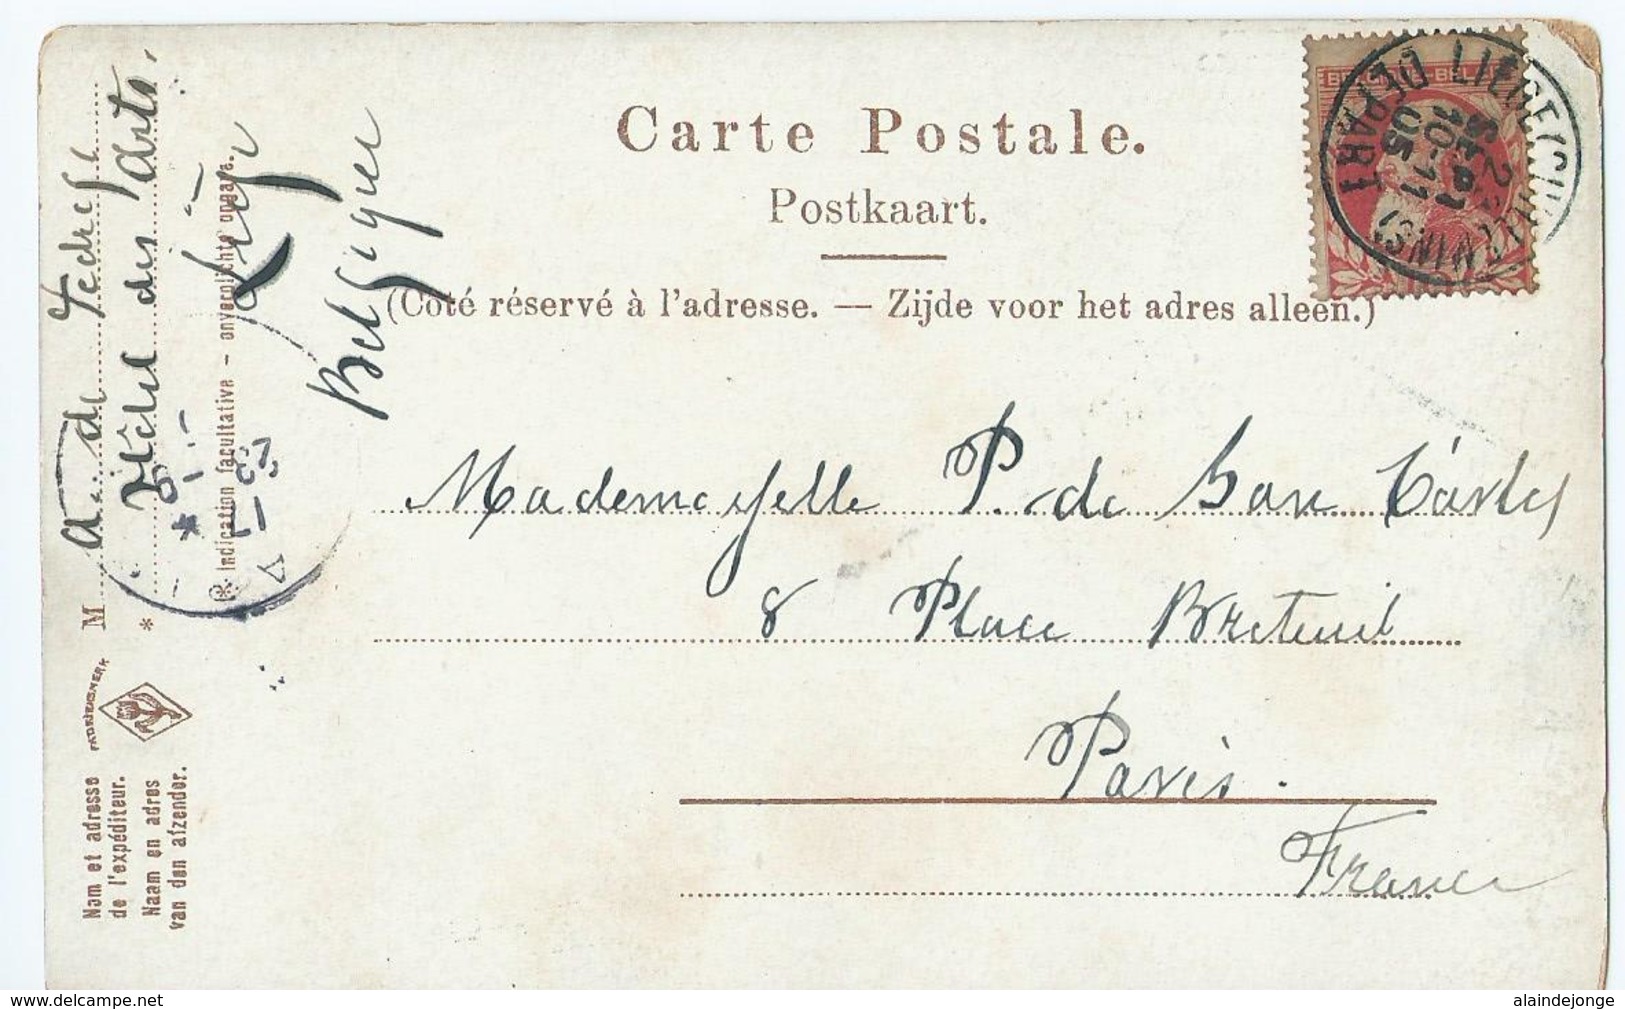 Carte Postale.
Postkaart.
(Côté réservé à l'adresse. — Zijde voor het adres alleen.)
Mademoyselle P. de San Carlos
8 Place Breteuil
Paris.
France
Nom et adresse
de l'expéditeur.
Naam en adres
van den afzender.
FABRIEKSMERK
M A. de
* Hôtel des Arts.
(* Indication facultative - onverplichte opgave.
Liège
Belgique
LIEGE (GUILLEMINS)
2 SEPT
10-11
05
DEPART
www.delcampe.net
alaindejonge